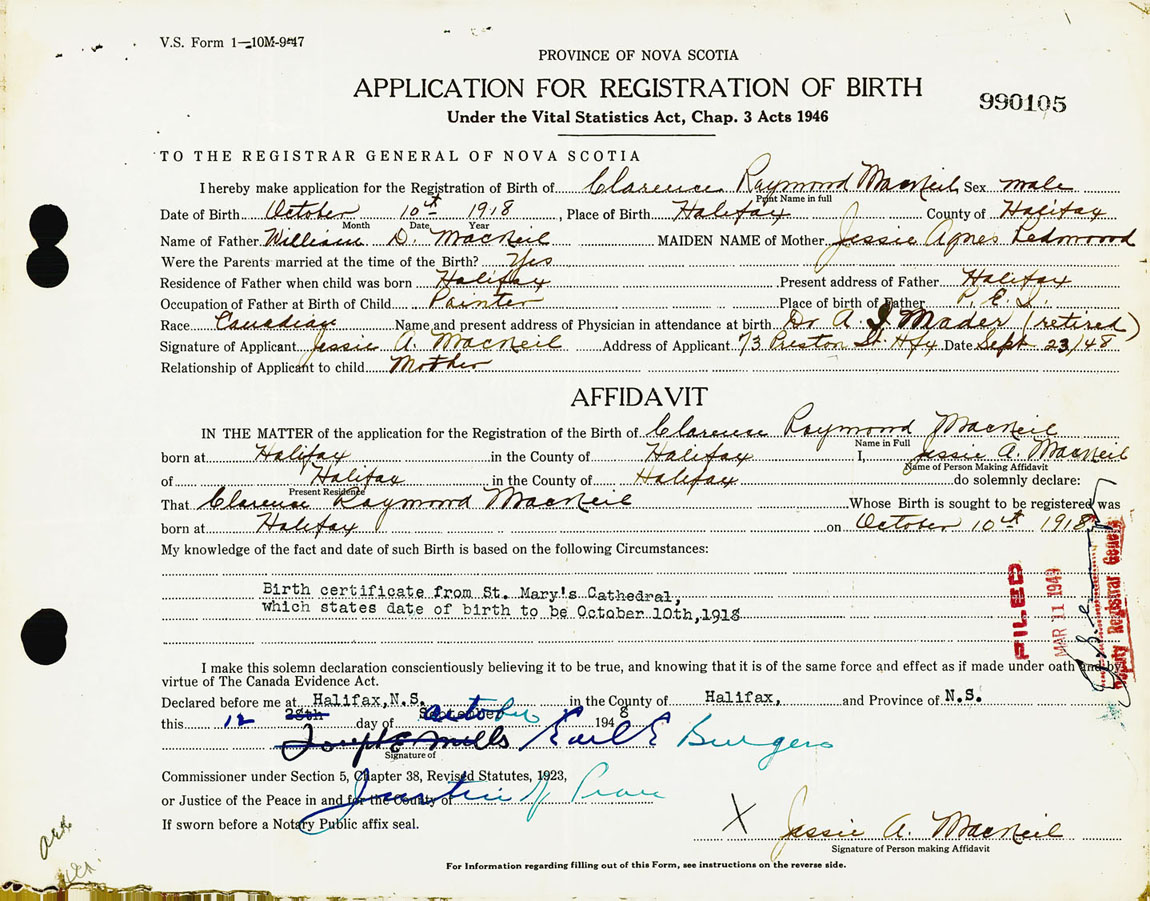 V.S. Form 1—10M-9-47
PROVINCE OF NOVA SCOTIA
APPLICATION FOR REGISTRATION OF BIRTH
990105
Under the Vital Statistics Act, Chap. 3 Acts 1946
TO THE REGISTRAR GENERAL OF NOVA SCOTIA
I hereby make application for the Registration of Birth of Clarence Raymond MacNeil Sex male
Print Name in full
Date of Birth October 10th 1918, Place of Birth Halifax County of Halifax
Month Date Year
Name of Father William D. MacNeil MAIDEN NAME of Mother Jessie Agnes Redmond
Were the Parents married at the time of the Birth? Yes
Residence of Father when child was born Halifax Present address of Father Halifax
Occupation of Father at Birth of Child Painter Place of birth of Father P. E. I.
Race Canadian Name and present address of Physician in attendance at birth Dr A I Mader (retired)
Signature of Applicant Jessie A. MacNeil Address of Applicant 73 Preston St. Hfx Date Sept 23/48
Relationship of Applicant to child Mother
AFFIDAVIT
IN THE MATTER of the application for the Registration of the Birth of Clarence Raymond MacNeil
Name in Full
born at Halifax in the County of Halifax I, Jessie A. MacNeil
Name of Person Making Affidavit
of Halifax in the County of Halifax do solemnly declare:
Present Residence
That Clarence Raymond MacNeil Whose Birth is sought to be registered was
born at Halifax on October 10th 1918
My knowledge of the fact and date of such Birth is based on the following Circumstances:
Birth certificate from St. Mary's Cathedral,
which states date of birth to be October 10th,1918
FILED
MAR 11 1949
Deputy Registrar General
I make this solemn declaration conscientiously believing it to be true, and knowing that it is of the same force and effect as if made under oath and by
virtue of The Canada Evidence Act.
Declared before me at Halifax,N.S. in the County of Halifax, and Province of N.S.
this 12 28th day of October 1948
Joseph E Mills Earl E Burgers
Signature of
Commissioner under Section 5, Chapter 38, Revised Statutes, 1923,
or Justice of the Peace in and for the County of
If sworn before a Notary Public affix seal.
X Jessie A. MacNeil
Signature of Person making Affidavit
For Information regarding filling out of this Form, see instructions on the reverse side.